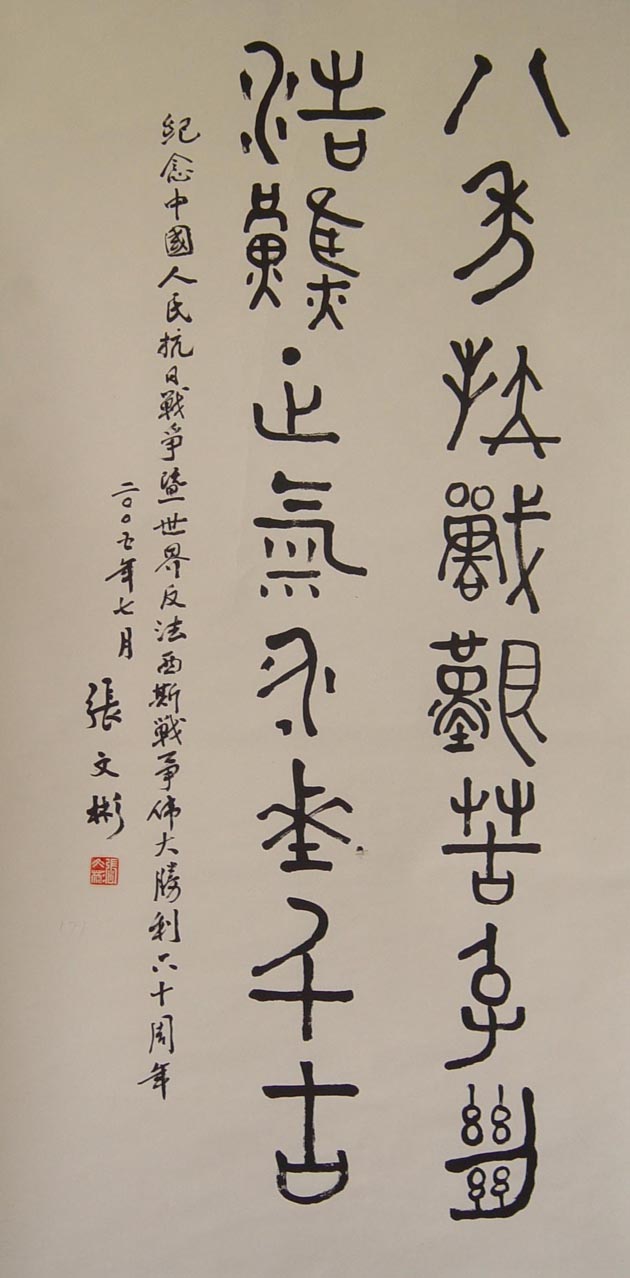 八年抗戰艱苦卓絕
浩然正氣永垂千古
紀念中國人民抗日戰爭暨世界反法西斯戰爭偉大勝利六十周年
二〇〇五年七月
張文彬